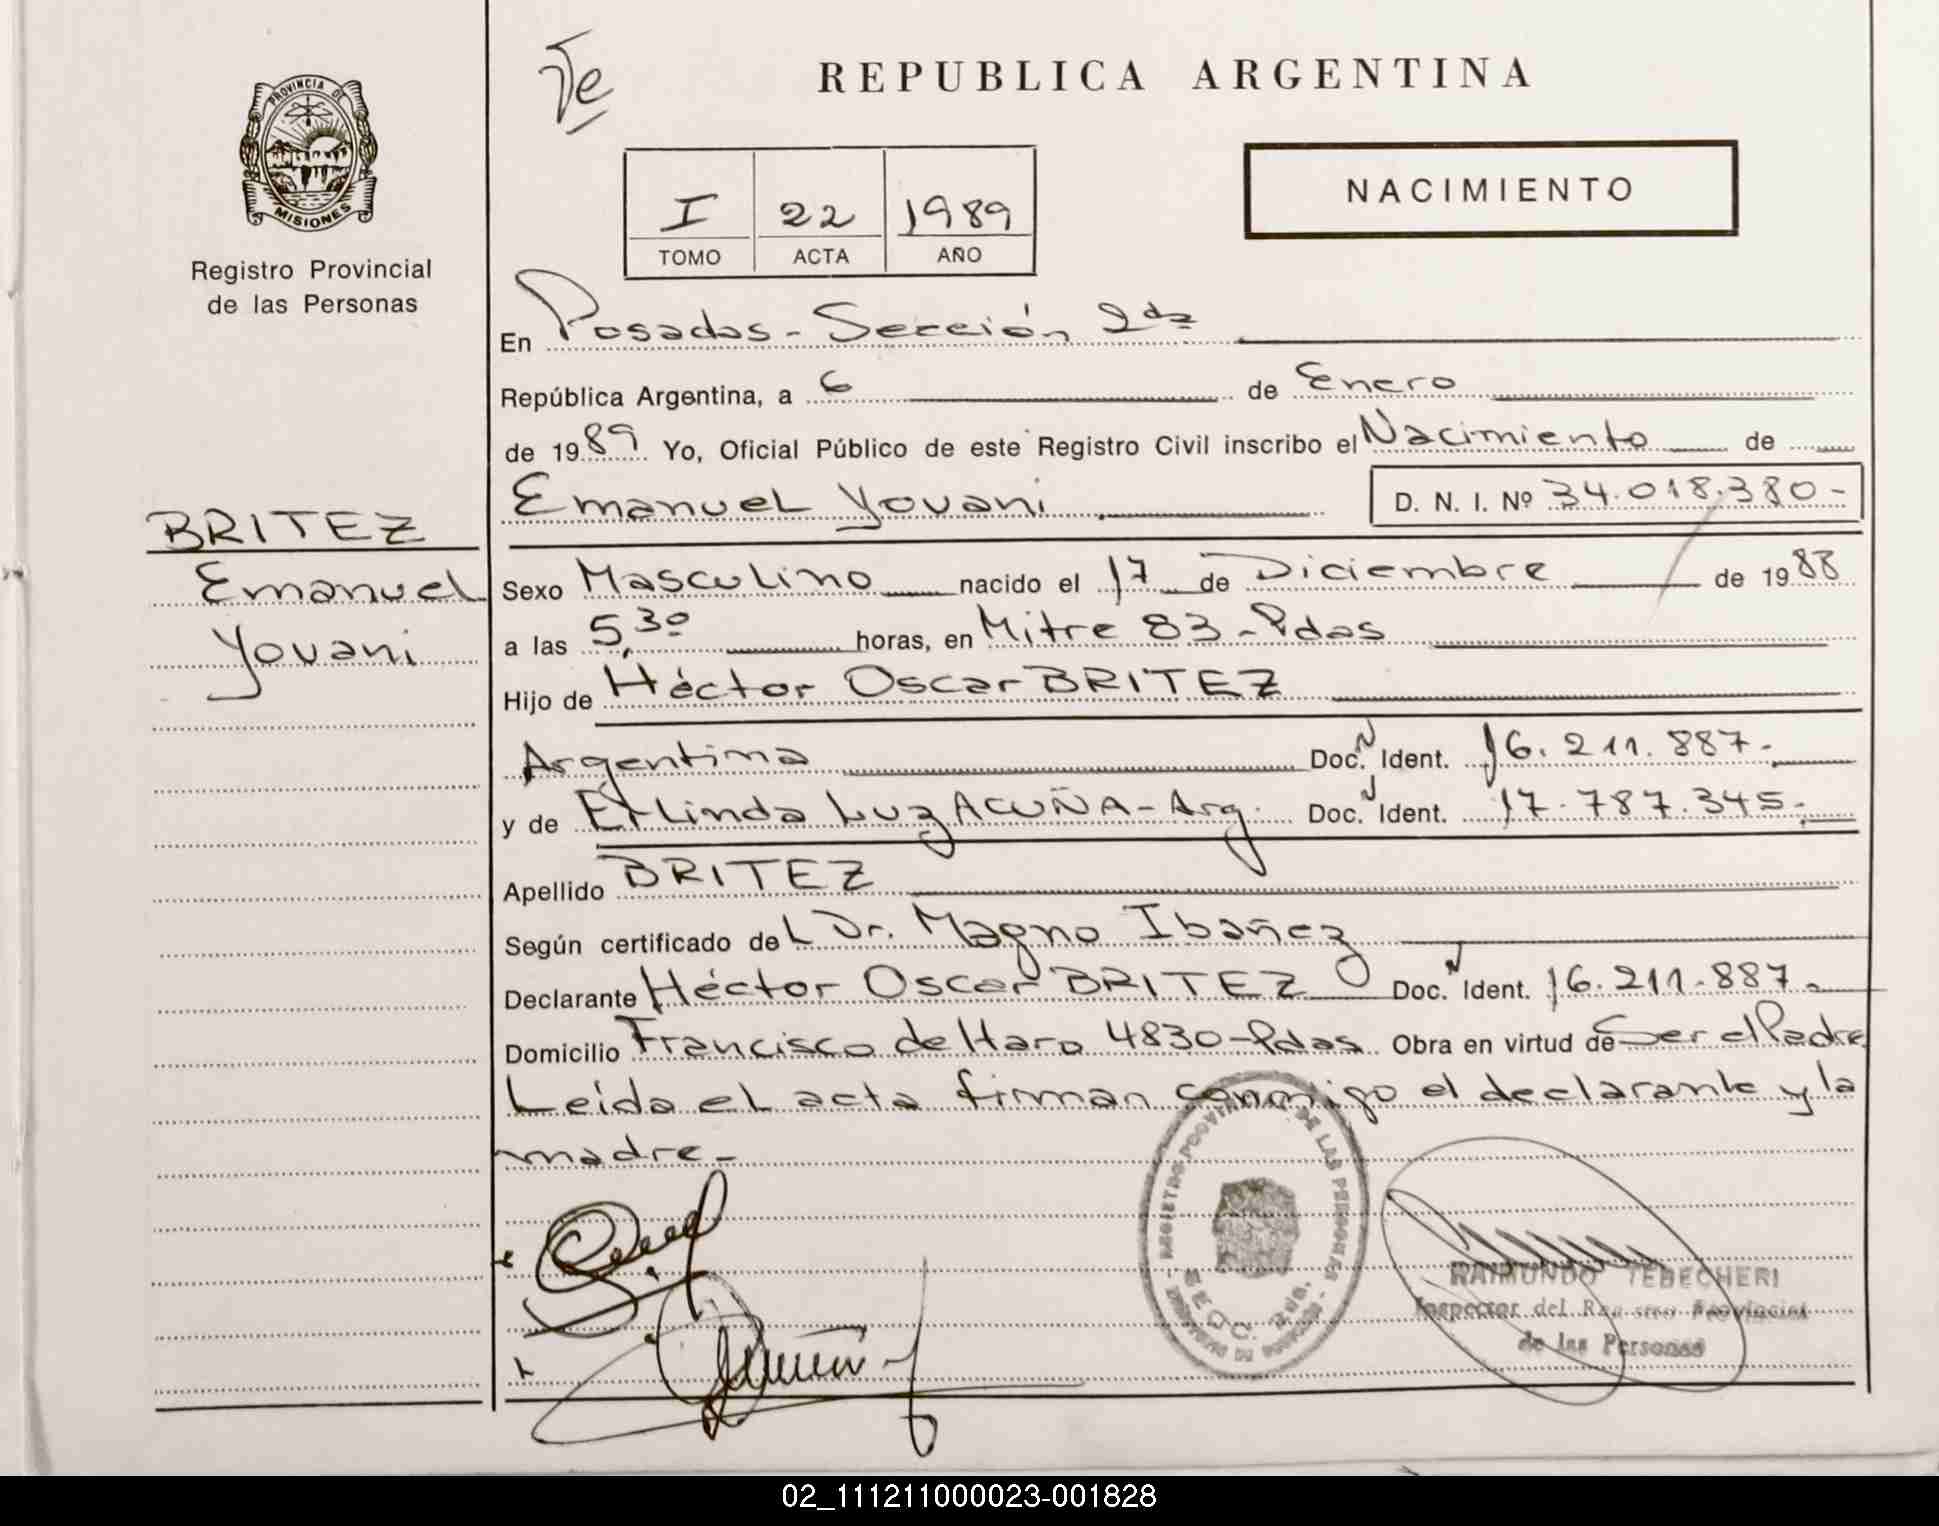 Te
REPUBLICA ARGENTINA
PROVINCIA DE
MISIONES
Registro Provincial
de las Personas
I 22 1989
TOMO ACTA AÑO
NACIMIENTO
En Posadas - Sección 2da
República Argentina, a 6 de Enero
de 1989 Yo, Oficial Público de este Registro Civil inscribo el Nacimiento de
Emanuel Yovani D. N. I. Nº 34.018.380-
BRITEZ
Emanuel
Yovani
Sexo Masculino nacido el 17 de Diciembre de 1988
a las 5,30 horas, en Mitre 83 - Pdas
Hijo de Héctor Oscar BRITEZ
Argentina Doc. Ident. 16.211.887.
y de Erlinda Luz ACUÑA - Arg. Doc. Ident. 17.787.345.
Apellido BRITEZ
Según certificado del Dr. Magno Ibañez
Declarante Héctor Oscar BRITEZ Doc. Ident. 16.211.887.
Domicilio Francisco de Haro 4830 - Pdas Obra en virtud de Ser el Padre
Leída el acta firman conmigo el declarante y la
madre -
DE LAS PERSONAS
RAIMUNDO TEBECHERI
Inspector del Registro Provincial
de las Personas
02_111211000023-001828